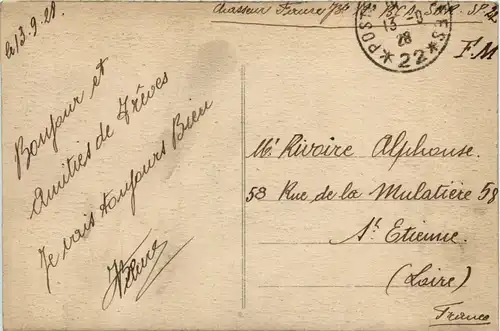 le 13.9.28
Bonjour et
Amitiés de Trêves
Je vais toujours Bien
Chasseur Faure
S.P. 22
* POSTES *
13 - 9
28
22
F.M
Mr Rivoire Alphonse.
58 Rue de la Mulatière 58
St Etienne.
(Loire)
France